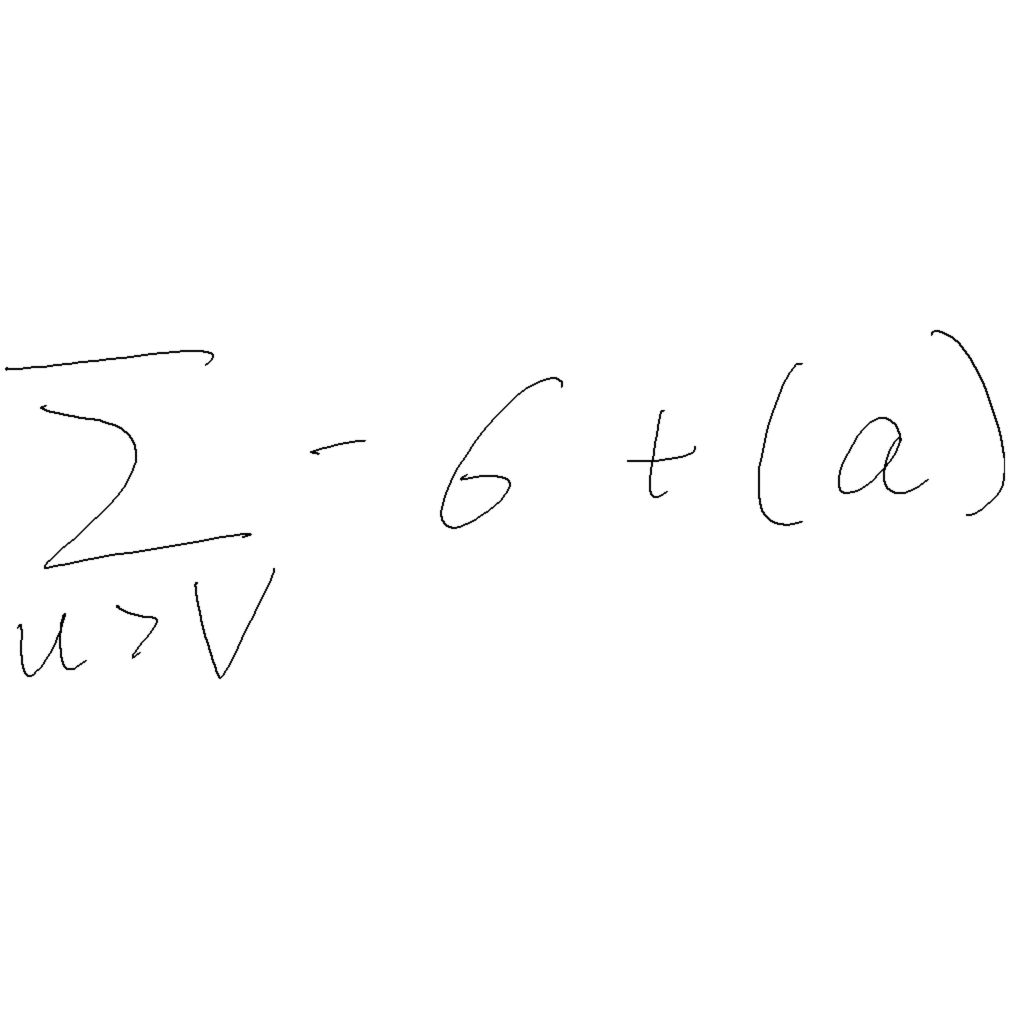 \sum_{u > V} - 6 + (a)